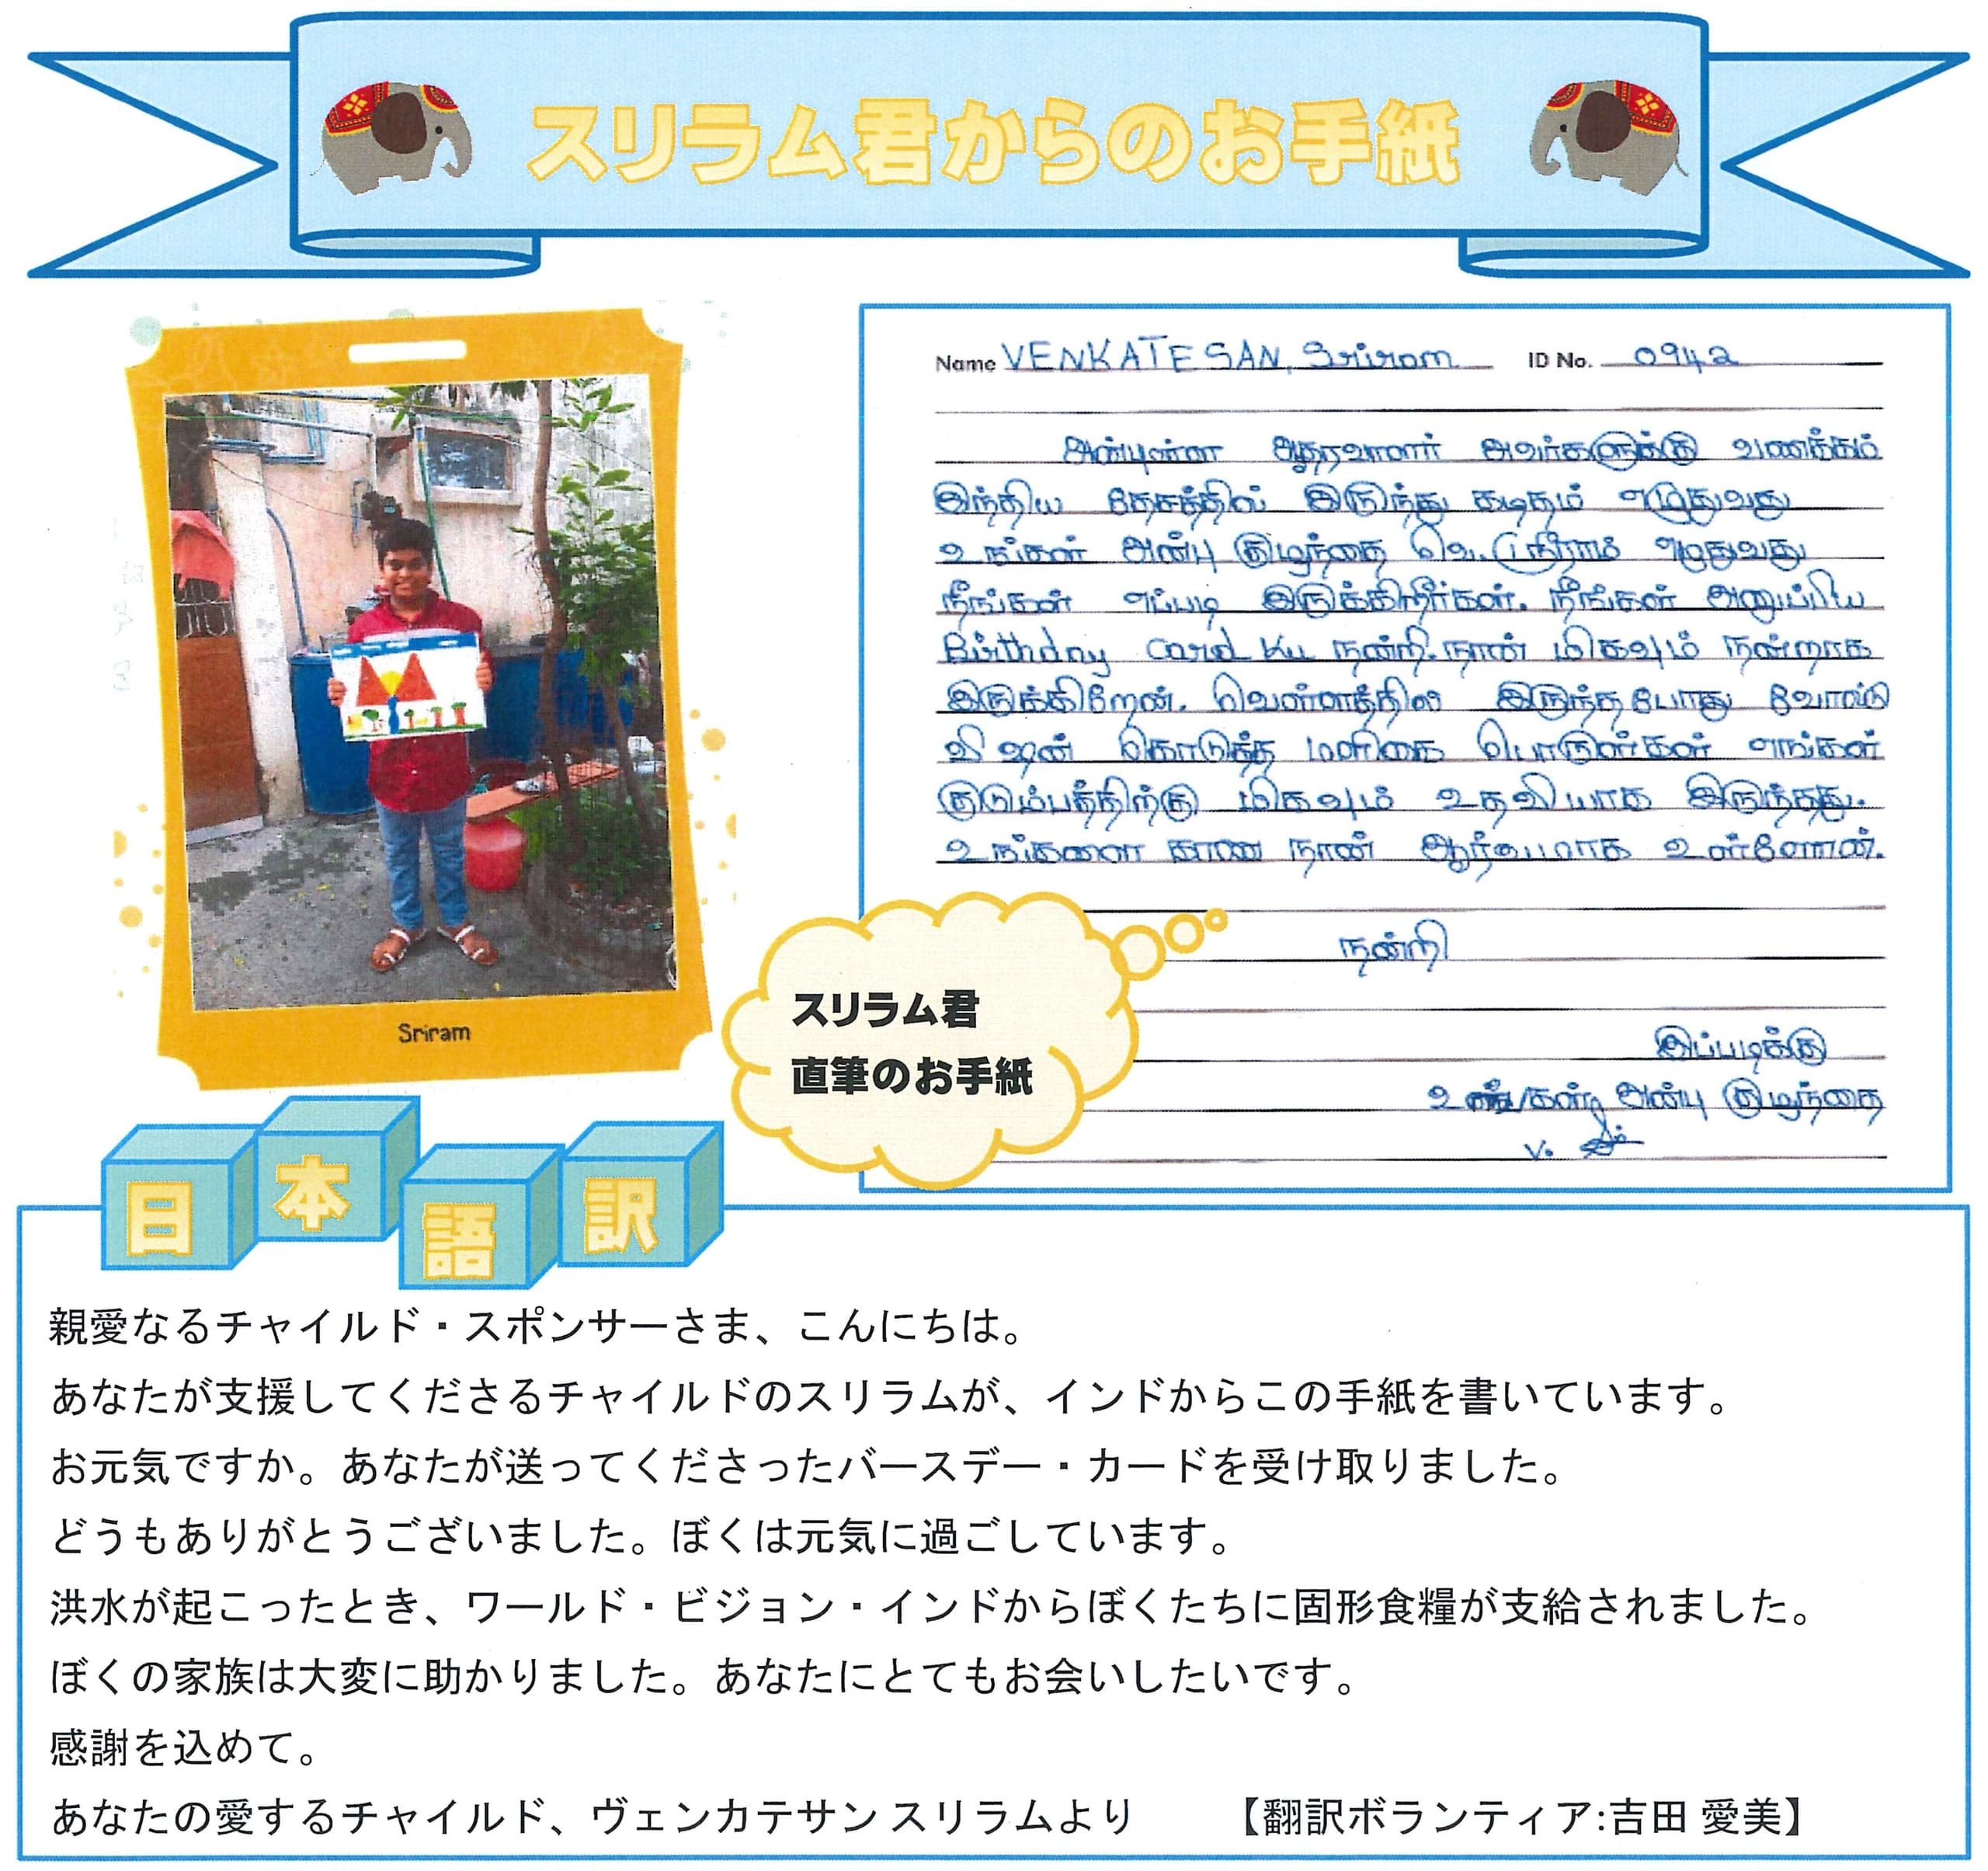 スリラム君からのお手紙
Name VENKATESAN, Sriram ID No. 0942
அன்புள்ள ஆதரவாளர் அவர்களுக்கு வணக்கம்
இந்திய தேசத்தில் இருந்து கடிதம் எழுதுவது
உங்கள் அன்பு குழந்தை வெ. ஸ்ரீராம் எழுதுவது
நீங்கள் எப்படி இருக்கிறீர்கள். நீங்கள் அனுப்பிய
Birthday card Ku நன்றி. நான் மிகவும் நன்றாக
இருக்கிறேன். வெள்ளத்தில் இருந்தபோது வோல்டு
விஷன் கொடுத்த மளிகை பொருள்கள் எங்கள்
குடும்பத்திற்கு மிகவும் உதவியாக இருந்தது.
உங்களை காண நான் ஆர்வமாக உள்ளேன்.
நன்றி
இப்படிக்கு
அன்பு குழந்தை
V.
Sriram
スリラム君
直筆のお手紙
日本語訳
親愛なるチャイルド・スポンサーさま、こんにちは。
あなたが支援してくださるチャイルドのスリラムが、インドからこの手紙を書いています。
お元気ですか。あなたが送ってくださったバースデー・カードを受け取りました。
どうもありがとうございました。ぼくは元気に過ごしています。
洪水が起こったとき、ワールド・ビジョン・インドからぼくたちに固形食糧が支給されました。
ぼくの家族は大変に助かりました。あなたにとてもお会いしたいです。
感謝を込めて。
あなたの愛するチャイルド、ヴェンカテサン スリラムより 【翻訳ボランティア:吉田 愛美】